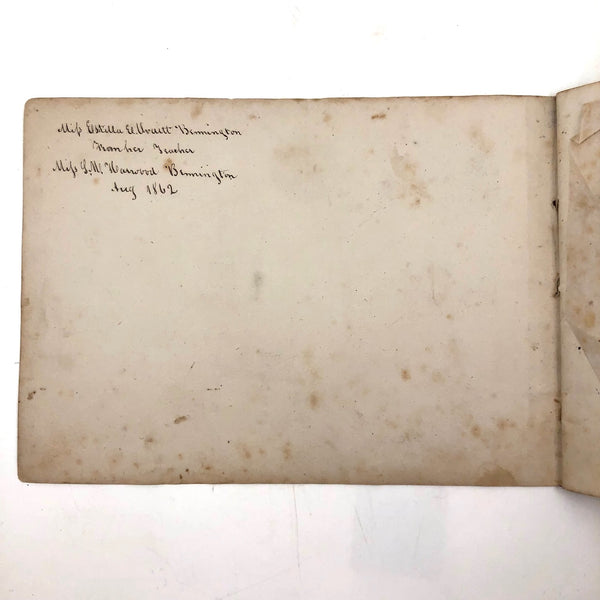 Miss Estella Bennington
From her Teacher
Miss S.M. Harwood Bennington
Aug 1862